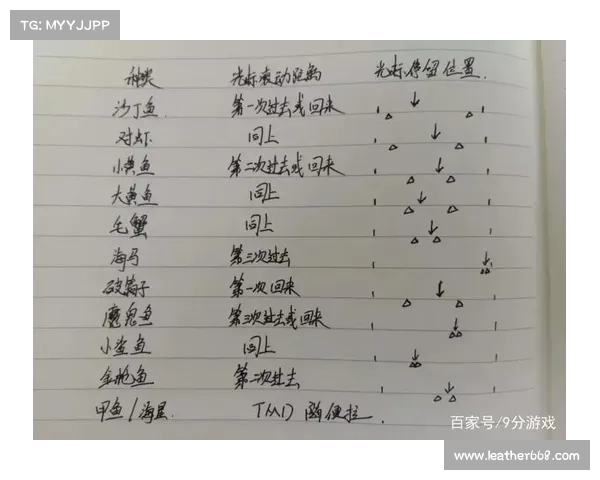 TG: MYYJJPP
种类 光标滚动距离 光标停留位置
沙丁鱼 第一次过去或回来
对虾 同上
小黄鱼 第二次过去或回来
大黄鱼 同上
毛蟹 同上
海马 第三次过去
破篓子 第一次回来
魔鬼鱼 第三次过去或回来
小鲨鱼 同上
金枪鱼 第二次过去
甲鱼/海星 TMD 随便拉
百家号/9分游戏
www.leather668.com